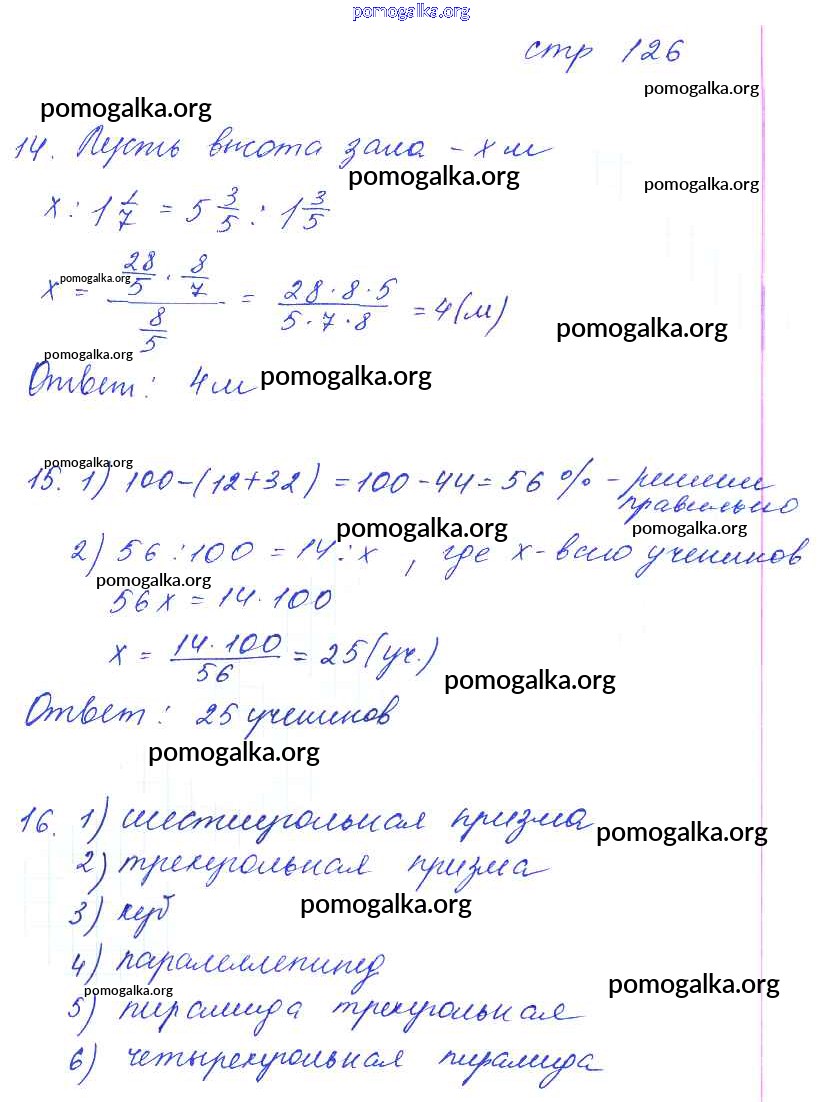 pomogalka.org
стр 126
pomogalka.org
pomogalka.org
14. Пусть высота зала - x м
pomogalka.org
pomogalka.org
x : 1 1/7 = 5 3/5 : 1 3/5
x = (28/5 · 8/7) / (8/5) = (28 · 8 · 5) / (5 · 7 · 8) = 4 (м)
pomogalka.org
pomogalka.org
pomogalka.org
Ответ: 4 м
pomogalka.org
pomogalka.org
15. 1) 100-(12+32) = 100-44 = 56 % - решили
правильно
pomogalka.org
pomogalka.org
2) 56 : 100 = 14 : x, где x - всего учеников
pomogalka.org
56x = 14 · 100
x = (14 · 100) / 56 = 25 (уч.)
pomogalka.org
Ответ: 25 учеников
pomogalka.org
16. 1) шестиугольная призма
pomogalka.org
2) треугольная призма
3) куб
pomogalka.org
4) паралеллепипед
pomogalka.org
pomogalka.org
5) пирамида треугольная
6) четырехугольная пирамида